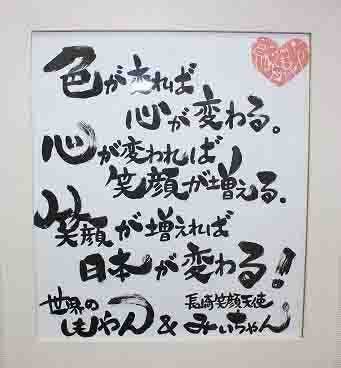 色が変れば
心が変わる。
心が変われば
笑顔が増える.
笑顔が増えれば
日本が変わる!
世界の 長崎笑顔天使
しもやん & みぃちゃん